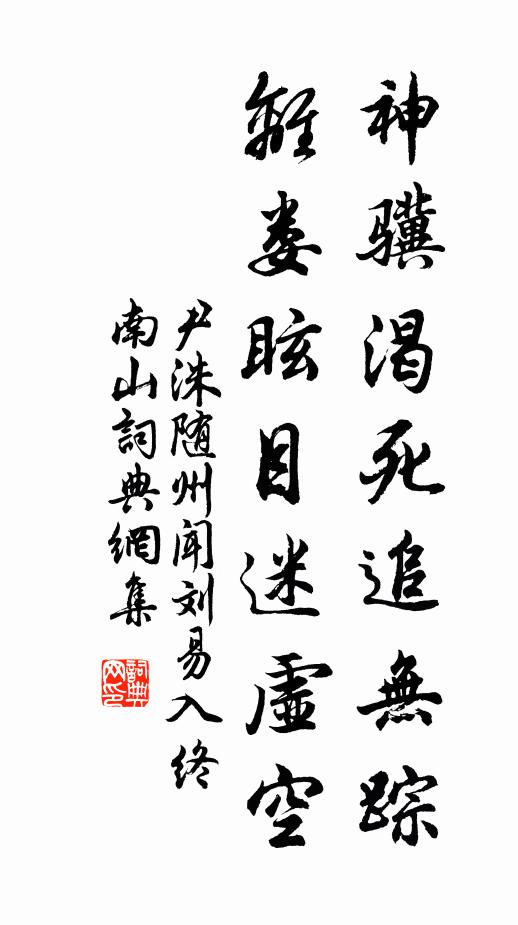 神骥渴死追無踪
離娄眩目迷虚空
尹洙随州闻刘易入终
南山詞典網集
詞典网印